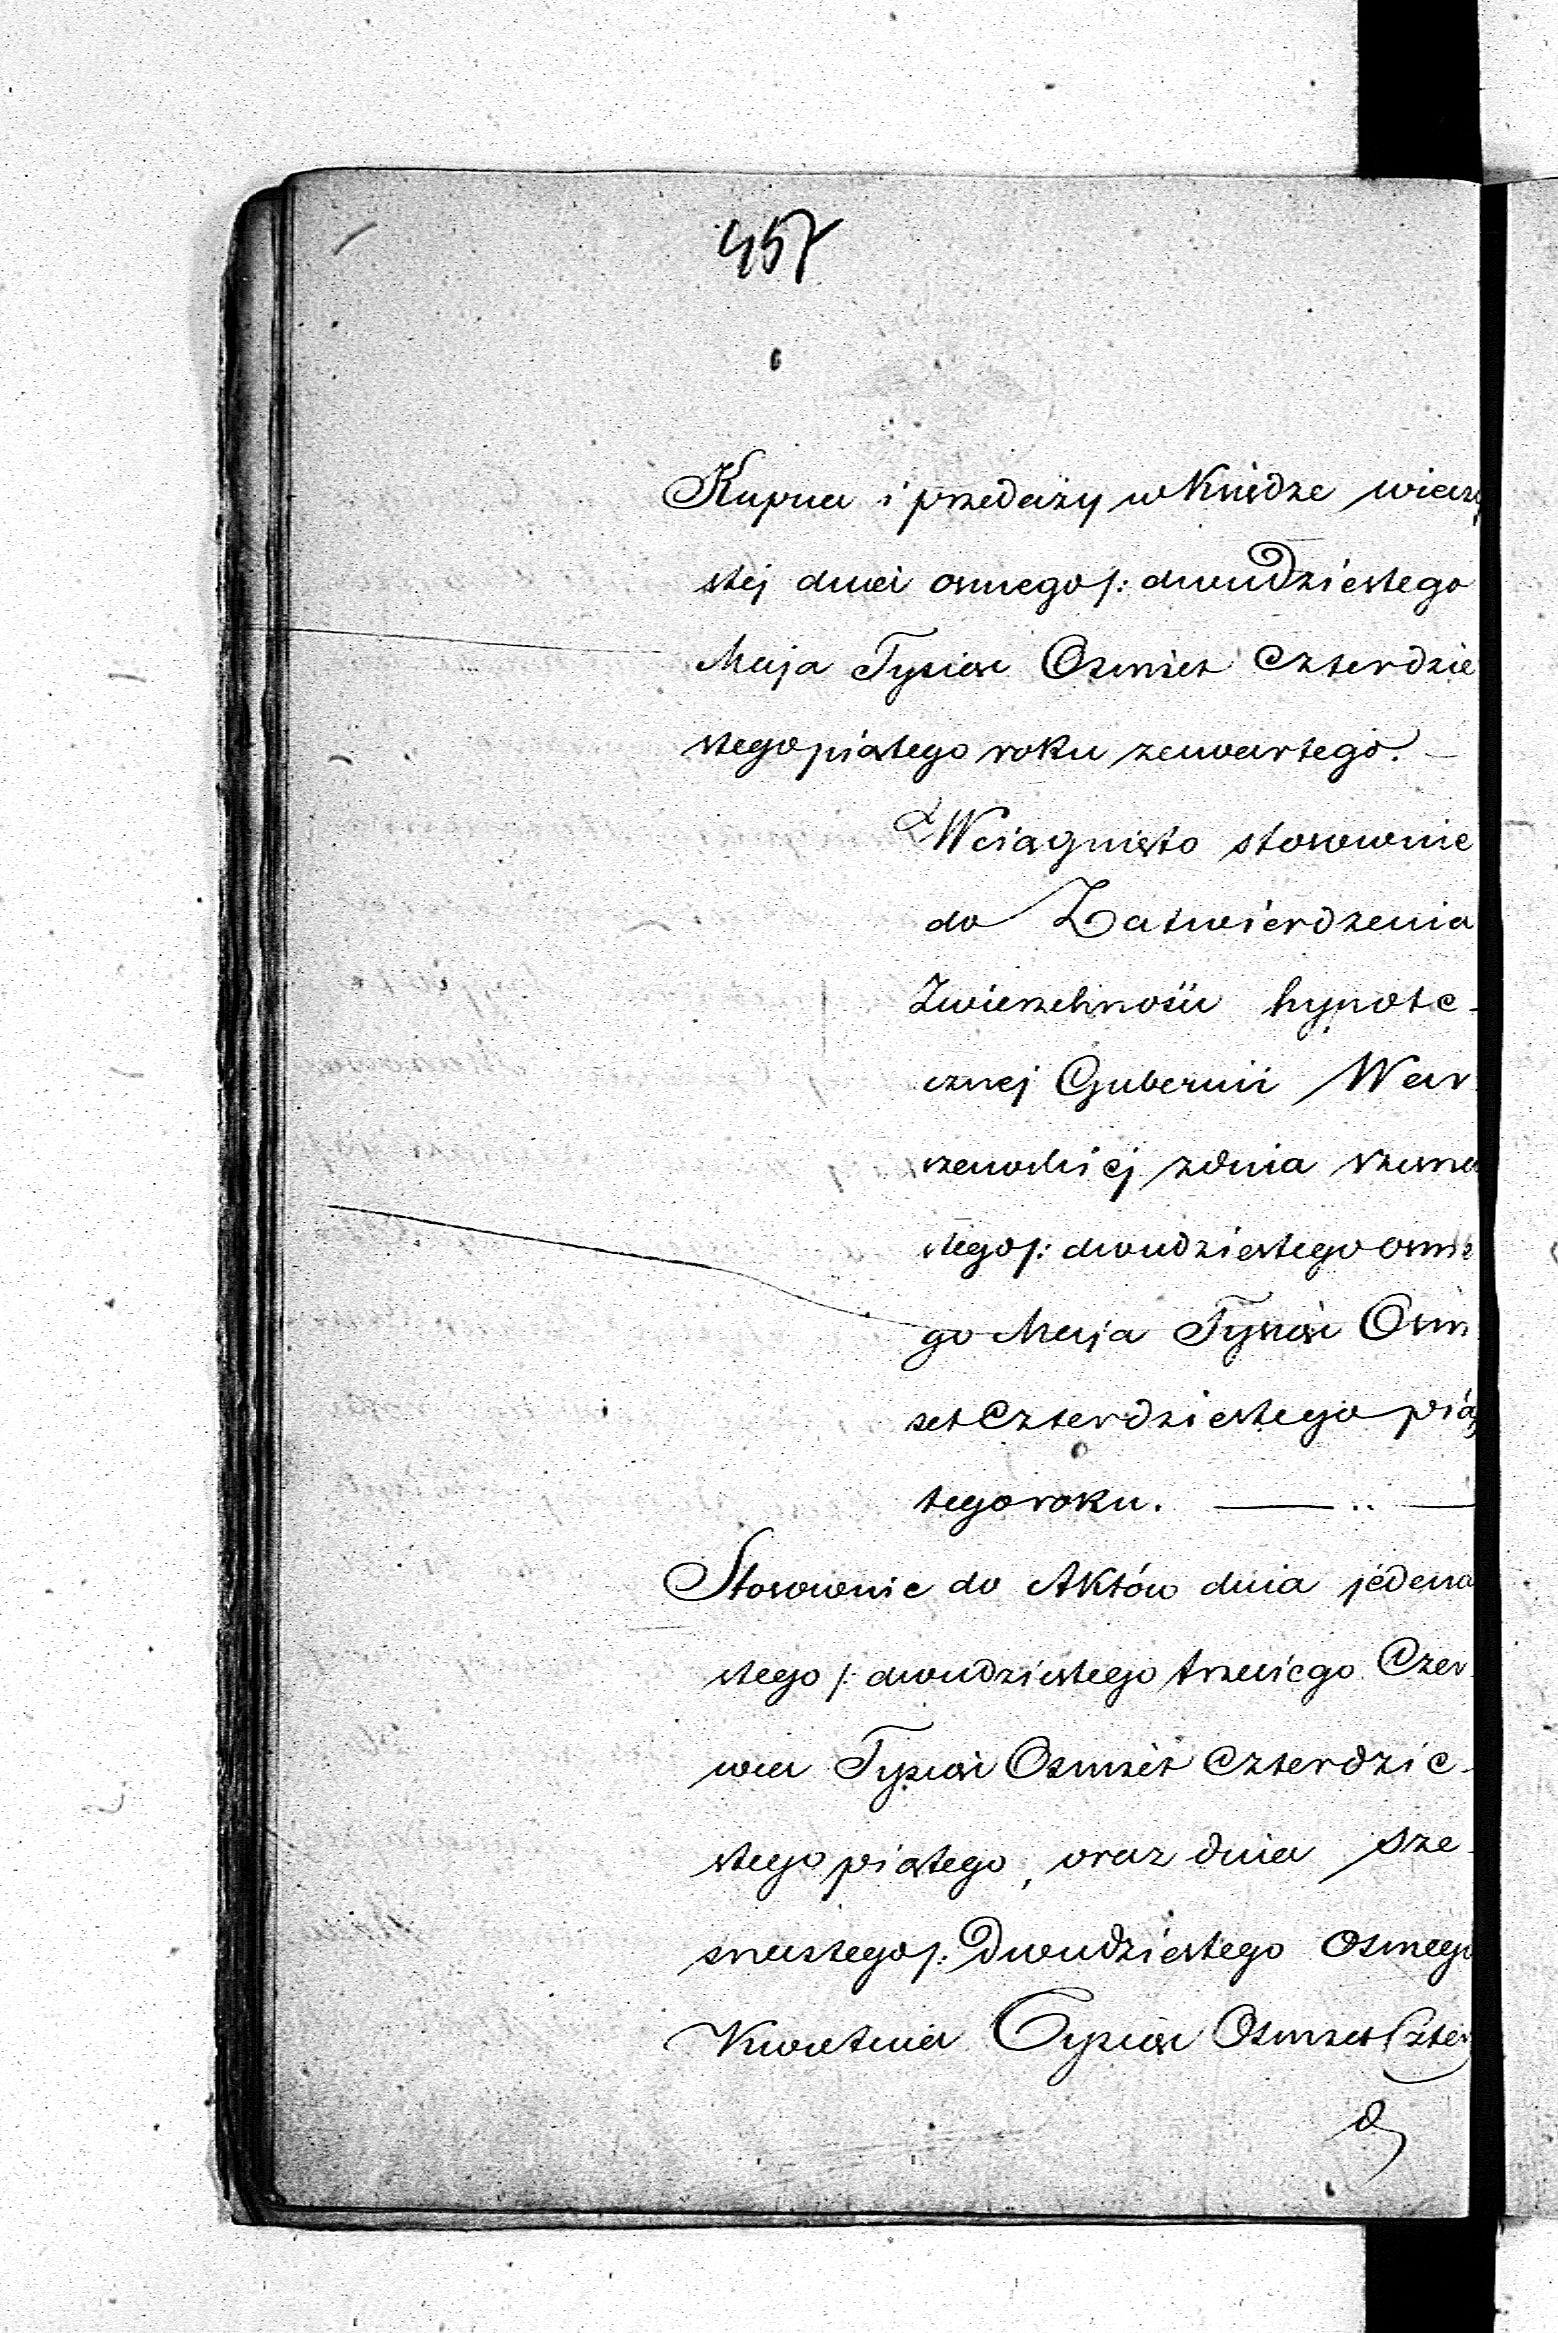 457
Kupna i przedaży w Księdze wieczy
stej dnia osmego /: dwudziestego
Maja Tysiąc Osmset Czterdzie
stego piątego roku zawartego. —
Wciągnięto stosownie
do Zatwierdzenia
Zwierzchności hypote-
cznej Gubernii War
szawskiej z dnia szesna
stego /: dwudziestego osme
go Maja Tysiąc Osm
set Czterdziestego pią
tego roku. — .. —
Stosownie do Aktów dnia jedena
stego /: dwudziestego trzeciego Czer
wca Tysiąc Osmset Czterdzie-
stego piątego, oraz dnia sze-
snastego /: Dwudziestego Osmego
Kwietnia Tysiąc Osmset Czter
d